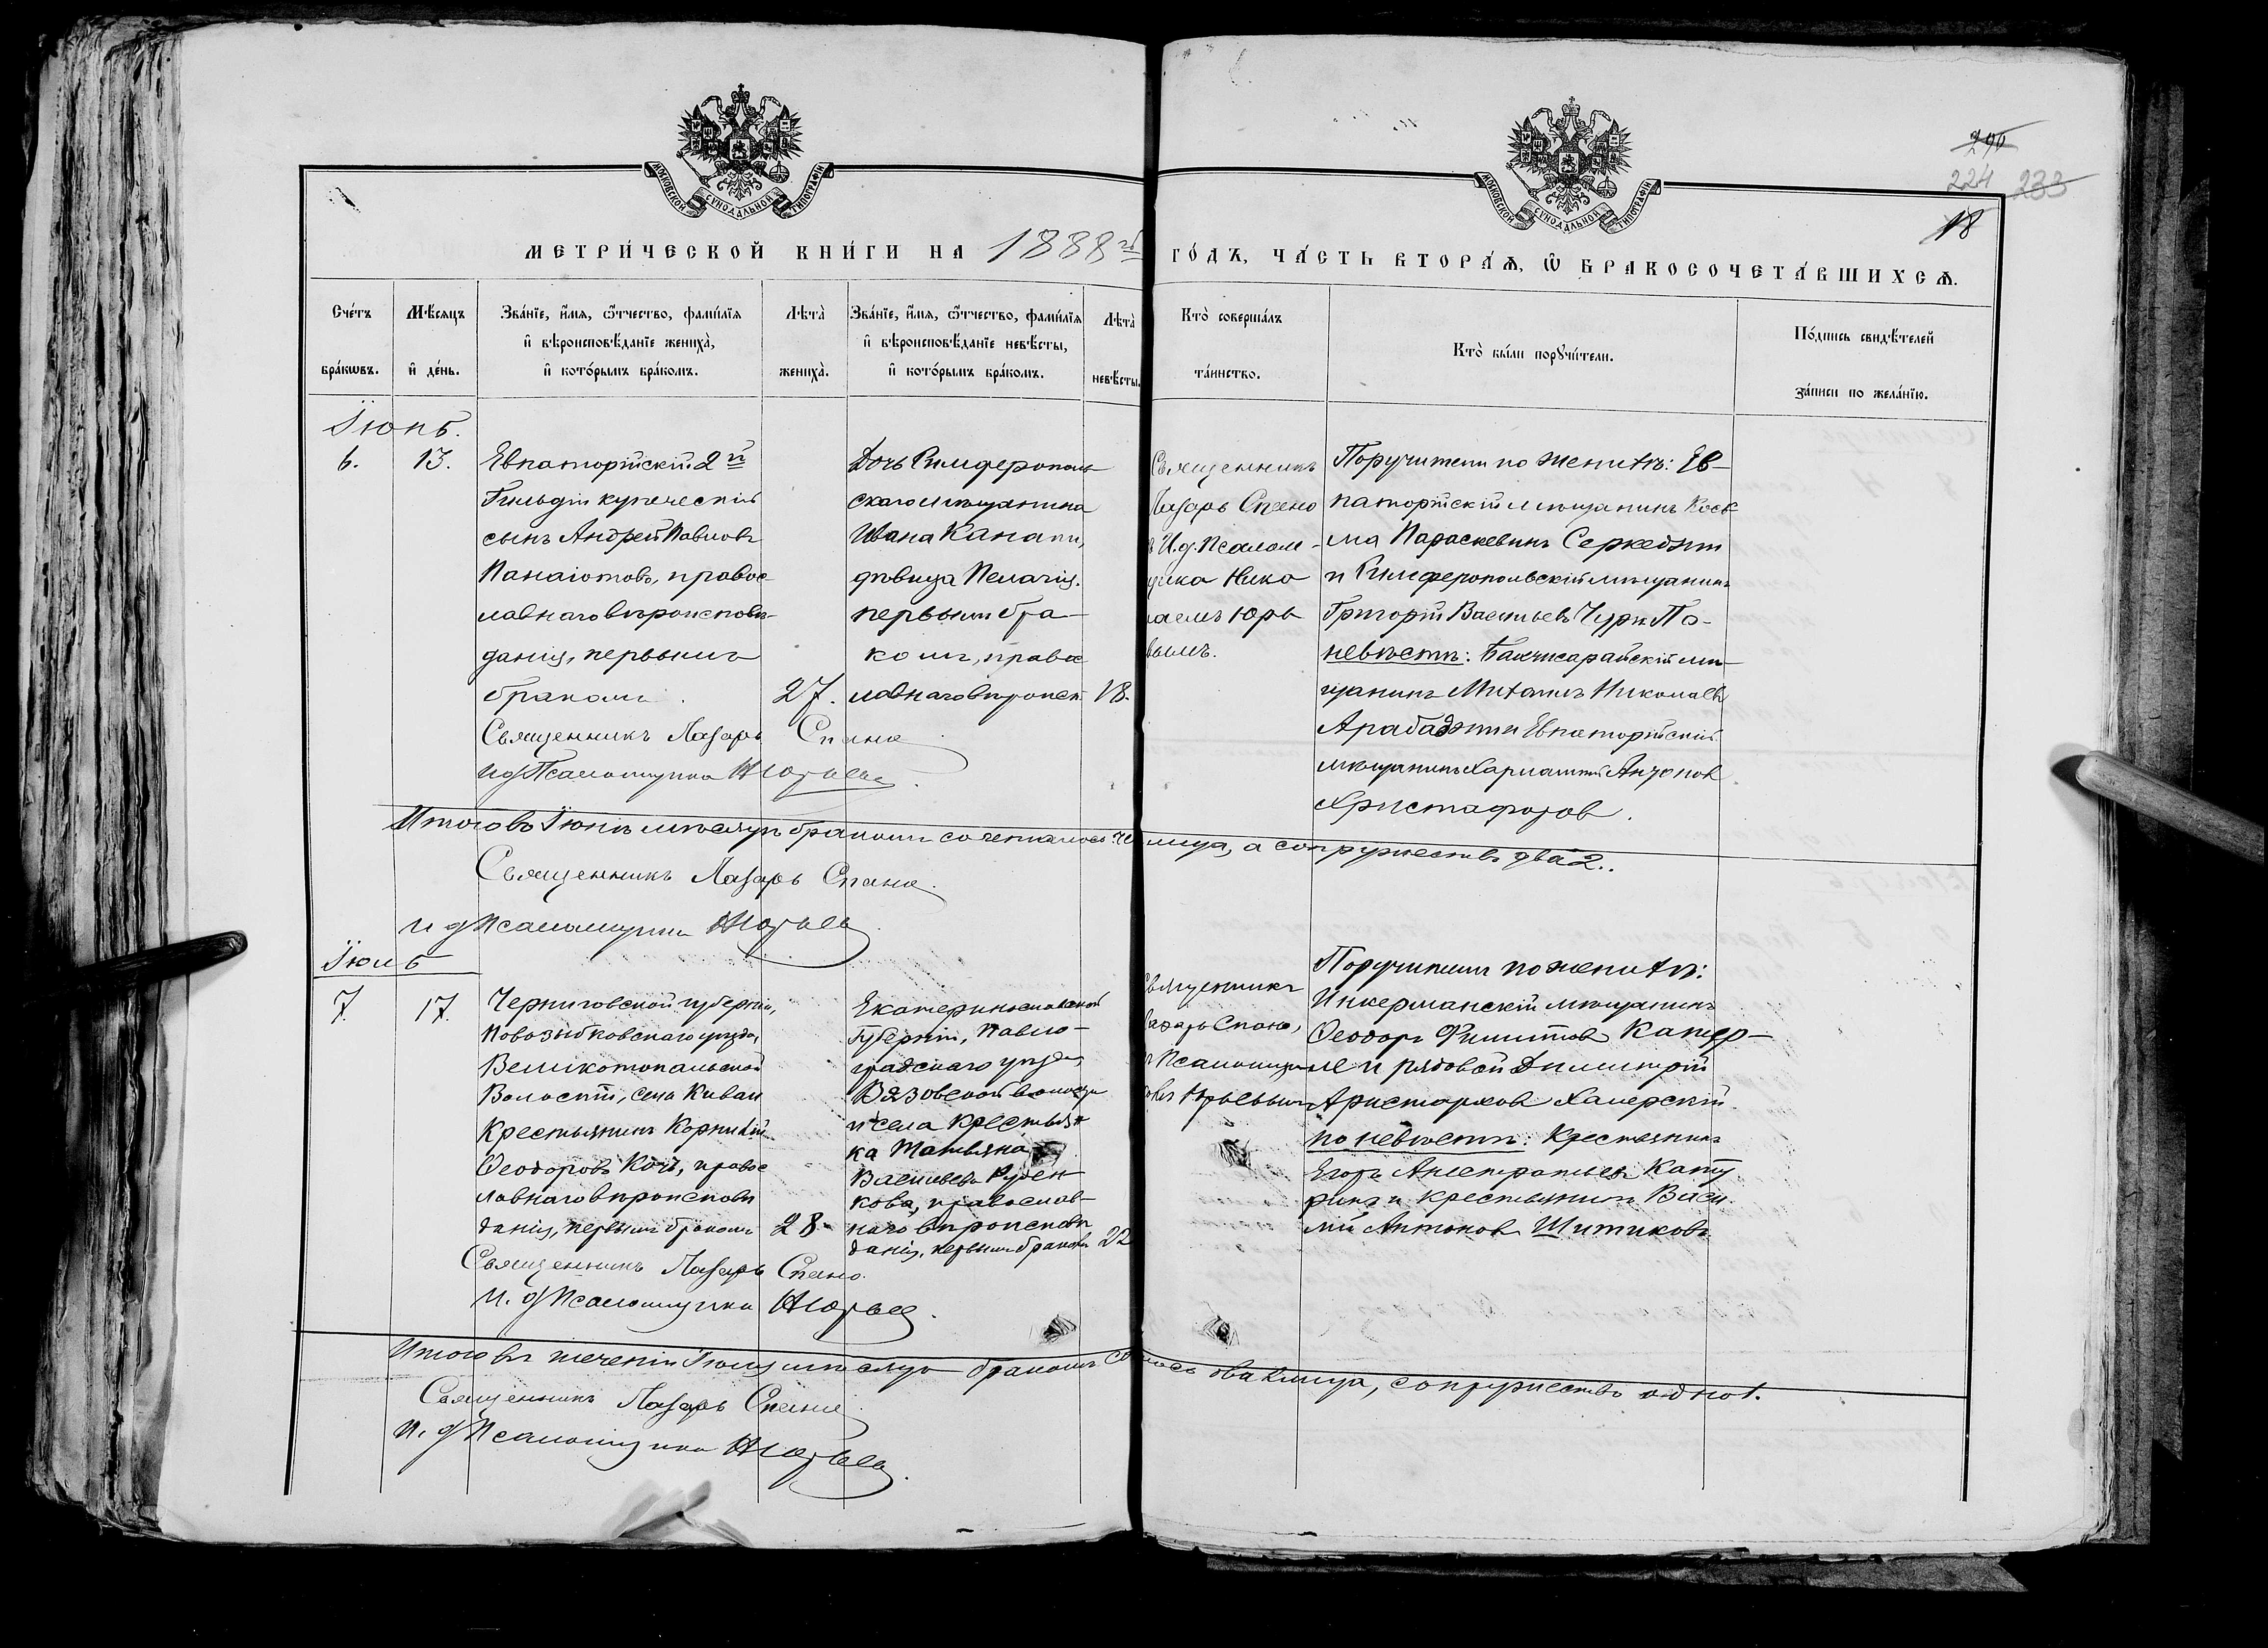 МОСКОВСКОЙ СѴНОДАЛЬНОЙ ТИПОГРАФІИ
МОСКОВСКОЙ СѴНОДАЛЬНОЙ ТИПОГРАФІИ
290
224 233
18
МЕТРИ́ЧЕСКОЙ КНИ́ГИ НА 1888й
ГО́ДЪ, ЧА́СТЬ ВТОРА́Ѧ, Ѡ҆ БРАКОСОЧЕТА́ВШИХСѦ.
Сче́тъ бра́кѡвъ.
Мѣ́сяцъ и҆ де́нь.
Зва́нїе, и҆́мѧ, ѻ҆́тчество, фами́лїѧ
и҆ вѣроисповѣ́данїе жениха̀,
и҆ кото́рымъ бра́комъ.
Лѣта̀ жениха̀.
Зва́нїе, и҆́мѧ, ѻ҆́тчество, фами́лїѧ
и҆ вѣроисповѣ́данїе невѣ́сты,
и҆ кото́рымъ бра́комъ.
Лѣта̀ невѣ́сты.
Кто̀ соверша́лъ
та́инство.
Кто̀ бы́ли порꙋчи́тели.
По́дпись свидѣ́телей
за́писи по жела́нїю.
Іюнь.
6. 13.
Евпаторійскій 2й
Гильдіи купеческій
сынъ Андрей Павловъ
Панаіотовъ, правос-
лавнаго вѣроисповѣ-
данія, первымъ
бракомъ. 27.
Дочь Симферополь-
скаго мѣщанина
Ивана Канаки,
дѣвица Пелагія.
первымъ бра-
комъ, правос
лавнаго вѣроисп. 18.
Священникъ
Лазарь Спано
и И.д. Псалом-
щика Нико
лаемъ Юрь
вымъ.
Поручители по женихѣ: Ев-
паторійскій мѣщанинъ Косъ
ма Параскевинъ Серкедзи
и Симферопольскій мѣщанинъ
Григорій Васильевъ Чурн По-
невѣстѣ: Бахчисарайскій мѣ-
щанинъ Михаилъ Николаевъ
Арабаджи и Евпаторійскій
мѣщанинъ Харлампій Антонов
Христафоров.
Священникъ Лазарь Спано
и д Псаломщика Н Юрьевъ.
Итого въ Іюнѣ мѣсяцѣ бракомъ сочеталось че лица, а супружествъ два 2.
Священникъ Лазарь Спано.
и д Псаломщика Н Юрьевъ
Іюль
7. 17.
Черниговской губерніи,
Новозыбковскаго уѣзда,
Великотопальской
Волости, села Киваи
Крестьянинъ Корнилій
Ѳеодоровъ Кочъ, правос
лавнаго вѣроисповѣ
данія, первымъ бракомъ 28.
Екатеринославской
Губерніи, Павло-
градскаго уѣзда,
Вязовской волости
и села Крестьян
ка Татьяна
Васильева Руден-
кова, православ-
наго вѣроисповѣ
данія, первымъ бракомъ 22
Священникъ
Лазарь Спано,
и Псаломщи
ковъ Юрьевымъ
Поручители по женихѣ:
Инкерманскій мѣщанинъ
Ѳеодоръ Филиповъ Катер-
ле и рядовой Димитрій
Аристархов Халерскій.
по невѣстѣ: Крестьянинъ
Егоръ Анстратьев Кату
ринъ и крестьянинъ Васи
лій Антонов Шитиковъ
Священникъ Лазарь Спано.
И. д Псаломщика Н Юрьевъ.
Итого въ теченіи Іюля мѣсяца бракомъ со лось два лица, супружество одно 1.
Священникъ Лазарь Спано
И. д Псаломщика Н Юрьевъ.